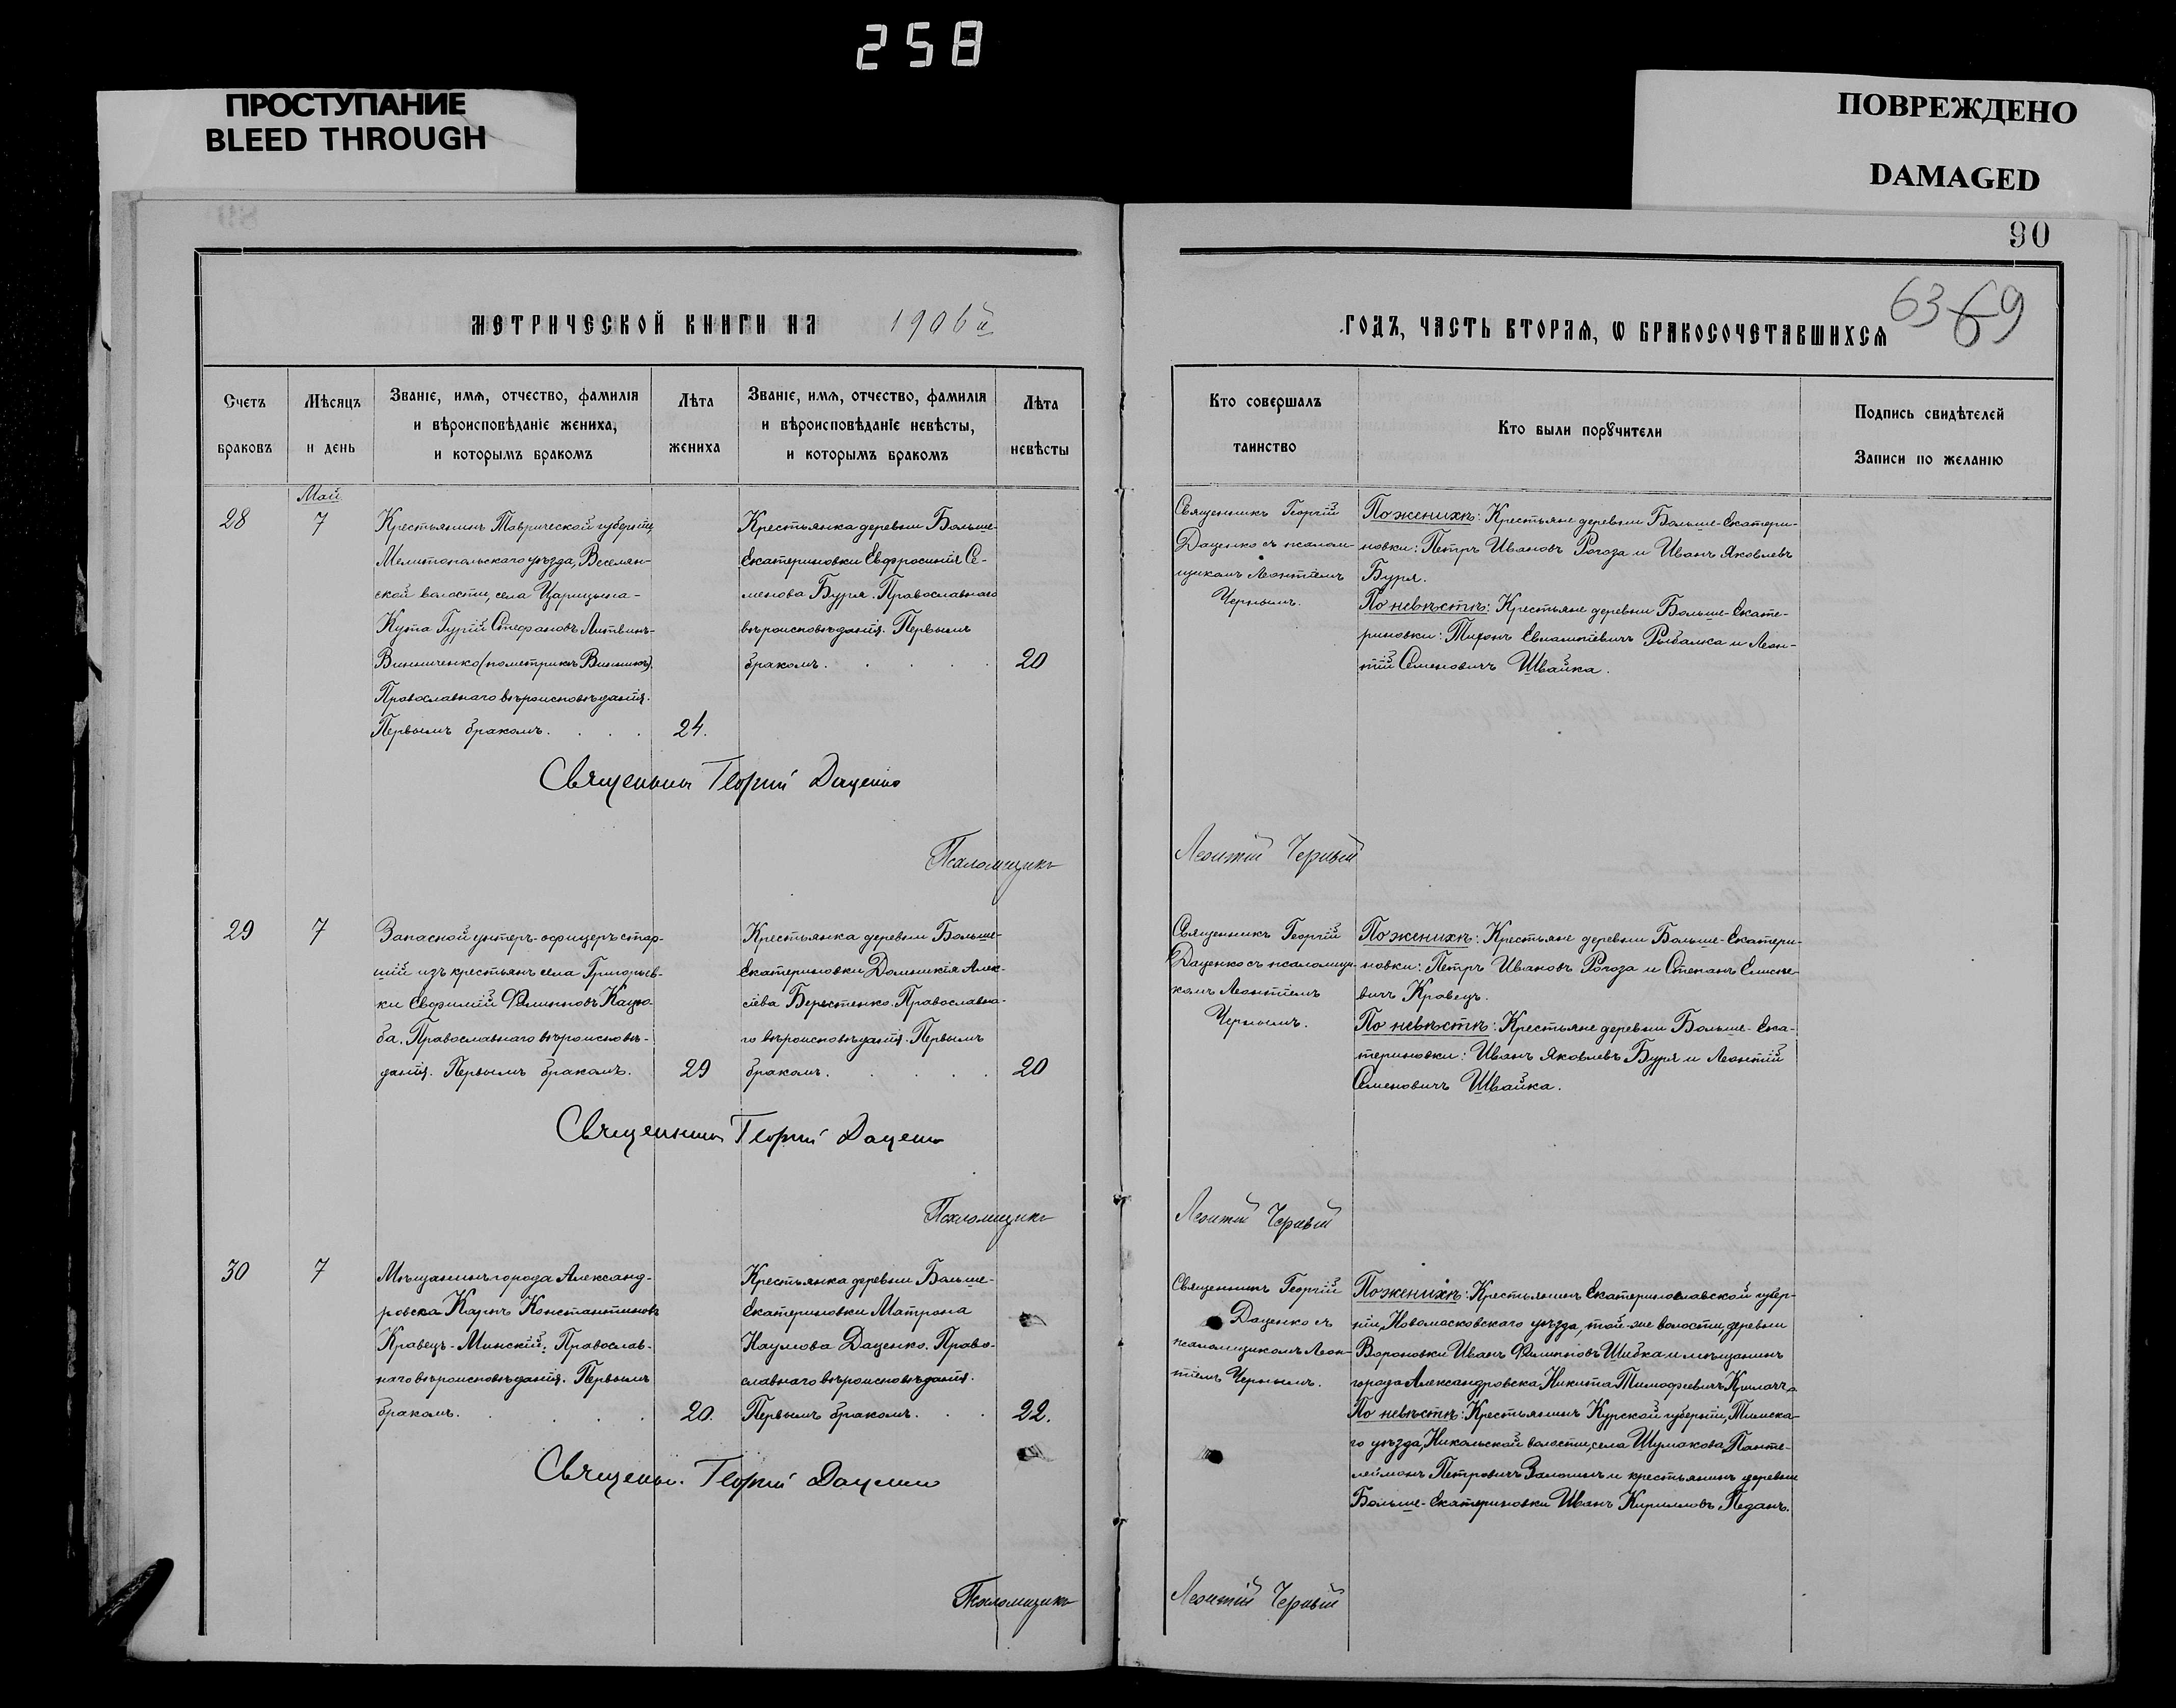 258
ПРОСТУПАНИЕ
BLEED THROUGH
ПОВРЕЖДЕНО
DAMAGED
90
63 69
МЕТРИЧЕСКОЙ КНИГИ НА 1906й
ГОДЪ, ЧАСТЬ ВТОРАѦ, Ѡ БРАКОСОЧЕТАВШИХСѦ
Счетъ
браковъ
Мѣсяцъ
и день
Званіе, имѧ, отчество, фамилія
и вѣроисповѣданіе жениха,
и которымъ бракомъ
Лѣта
жениха
Званіе, имѧ, отчество, фамилія
и вѣроисповѣданіе невѣсты,
и которымъ бракомъ
Лѣта
невѣсты
Кто совершалъ
таинство
Кто были порꙋчители
Подпись свидѣтелей
Записи по желанію
Май
28
7
Крестьянинъ Таврической губерніи,
Мелитопольскаго уѣзда, Веселян-
ской волости, села Царицына-
Кута Гурій Стефановъ Литвинъ-
Винниченко (по метрикѣ Винникъ).
Православнаго вѣроисповѣданія.
Первымъ бракомъ.
24.
Крестьянка деревни Больше-
Екатериновки Евфросинія Се-
менова Буря. Православнаго
вѣроисповѣданія. Первымъ
бракомъ.
20
Священникъ Георгій
Даценко съ псалом-
щикомъ Леонтіемъ
Чернымъ.
По женихѣ: Крестьяне деревни Больше-Екатери-
новки: Петръ Ивановъ Рогоза и Иванъ Яковлевъ
Буря.
По невѣстѣ: Крестьяне деревни Больше-Екате-
риновки: Тихонъ Евлампіевичъ Рыбалка и Леон-
тій Семеновичъ Швайка.
Священникъ Георгій Даценко
Псаломщикъ
Леонтій Черный
29
7
Запасной унтеръ-офицеръ стар-
шій изъ крестьянъ села Григорьев-
ки Евфимій Филипповъ Кацю-
ба. Православнаго вѣроисповѣ-
данія. Первымъ бракомъ.
29
Крестьянка деревни Больше-
Екатериновки Домникія Алек-
сіева Берестенко. Православна-
го вѣроисповѣданія. Первымъ
бракомъ.
20
Священникъ Георгій
Даценко съ псаломщи-
комъ Леонтіемъ
Чернымъ.
По женихѣ: Крестьяне деревни Больше-Екатери-
новки: Петръ Ивановъ Рогоза и Степанъ
вичъ Кравецъ.
По невѣстѣ: Крестьяне деревни Больше-Ека-
териновки: Иванъ Яковлевъ Буря и Леонтій
Семеновичъ Швайка.
Священникъ Георгій Даценко
Псаломщикъ
Леонтій Черный
30
7
Мѣщанинъ города Александ-
ровска Карпъ Константиновъ
Кравецъ-Минскій. Православ-
наго вѣроисповѣданія. Первымъ
бракомъ.
20.
Крестьянка деревни Больше-
Екатериновки Матрона
Наумова Даценко. Право-
славнаго вѣроисповѣданія.
Первымъ бракомъ.
22.
Священникъ Георгій
Даценко съ
псаломщикомъ Леон-
тіемъ Чернымъ.
По женихѣ: Крестьянинъ Екатеринославской губер-
ніи, Новомосковскаго уѣзда, той-же волости, деревни
Вороновки Иванъ Филипповъ Шибка и мѣщанинъ
города Александровска Никита Тимофеевичъ
По невѣстѣ: Крестьянинъ Курской губерніи, Тимска-
го уѣзда, Никольской волости, села Шумакова, Панте-
леймонъ Петровичъ и крестьянинъ деревни
Больше-Екатериновки Иванъ Кирилловъ Педанъ.
Священн. Георгій Даценко
Псаломщикъ
Леонтій Черный